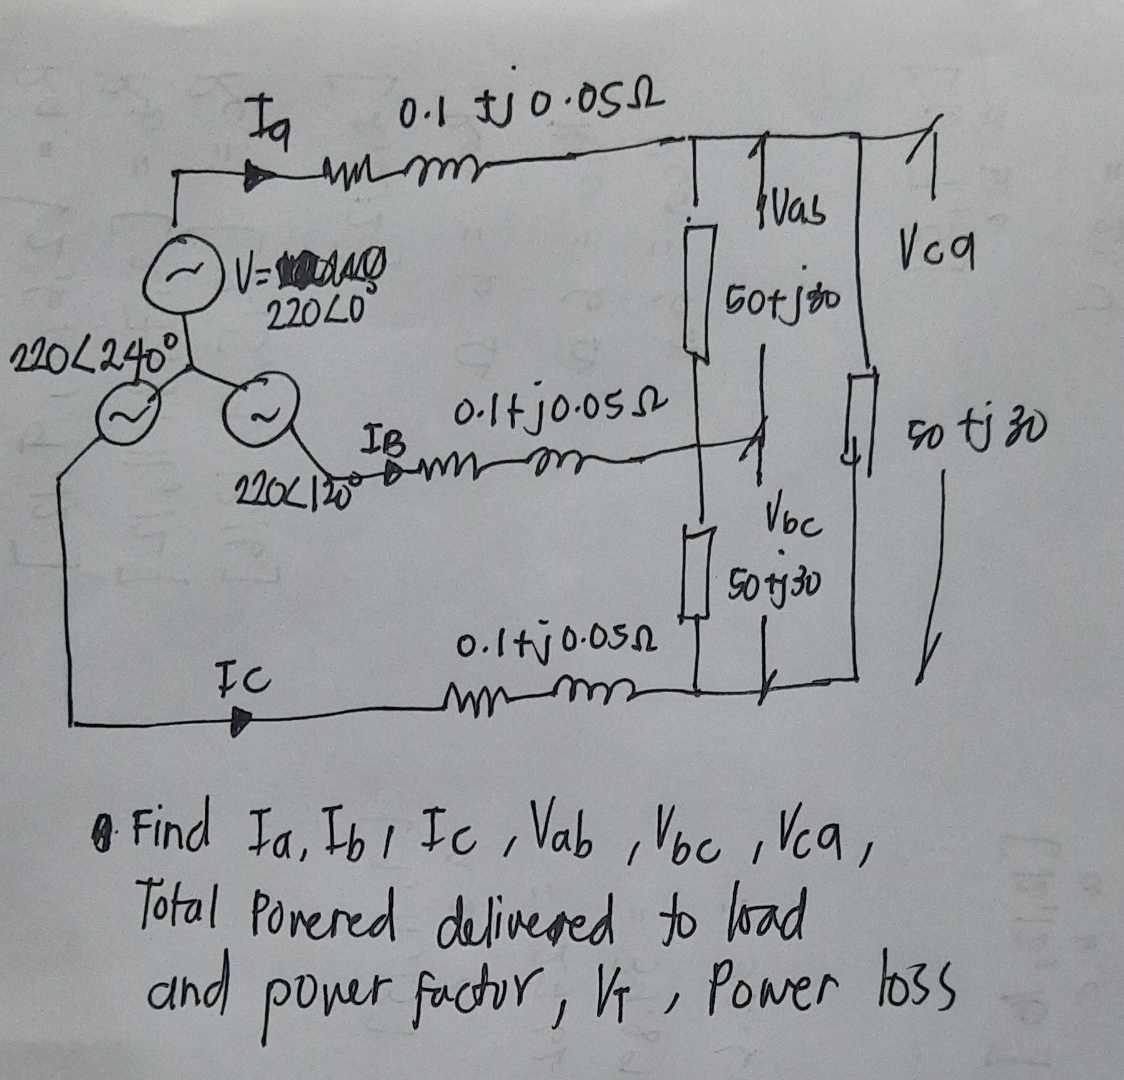 0.1 +j 0.05Ω
Ia
Vab
Vca
V=
220∠0°
50+j30
220∠240°
0.1+j0.05Ω
50 +j 30
IB
220∠120°
Vbc
50+j30
0.1+j0.05Ω
IC
Find Ia, Ib, Ic, Vab, Vbc, Vca,
Total Powered delivered to load
and power factor, VT, Power loss